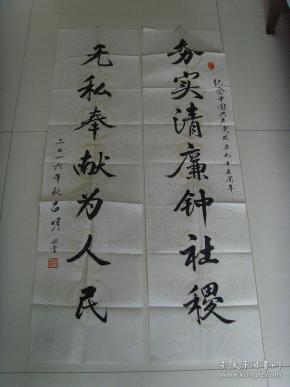 纪念中国共产党成立九十五周年
务实清廉钟社稷
无私奉献为人民
二〇一六年秋吕明
孔夫子旧书网